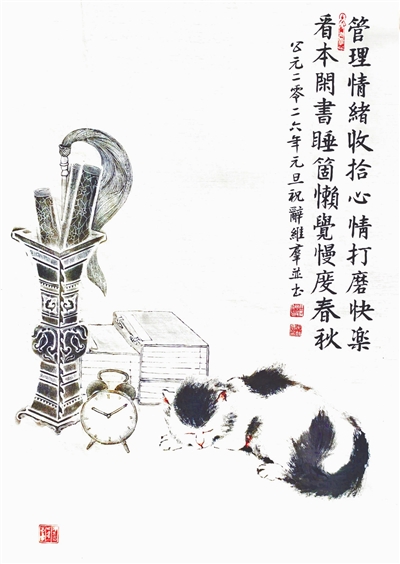 管理情緒收拾心情打磨快楽
看本閑書睡箇懶覺慢度春秋
公元二零二六年元旦祝辭維羣並书